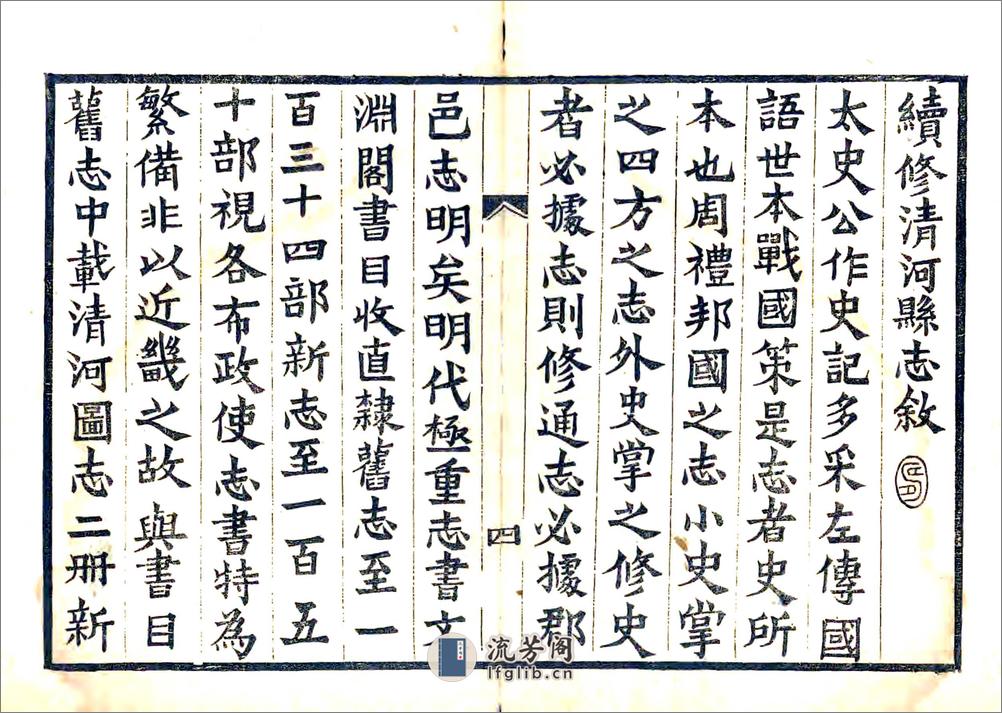 續修清河縣志敘
太史公作史記多采左傳國
語世本戰國策是志者史所
本也周禮邦國之志小史掌
之四方之志外史掌之修史
者必據志則修通志必據郡
四
邑志明矣明代極重志書文
淵閣書目收直隸舊志至一
百三十四部新志至一百五
十部視各布政使志書特為
繁備非以近畿之故與書目
舊志中載清河圖志二冊新
流芳阁
lfglib.cn